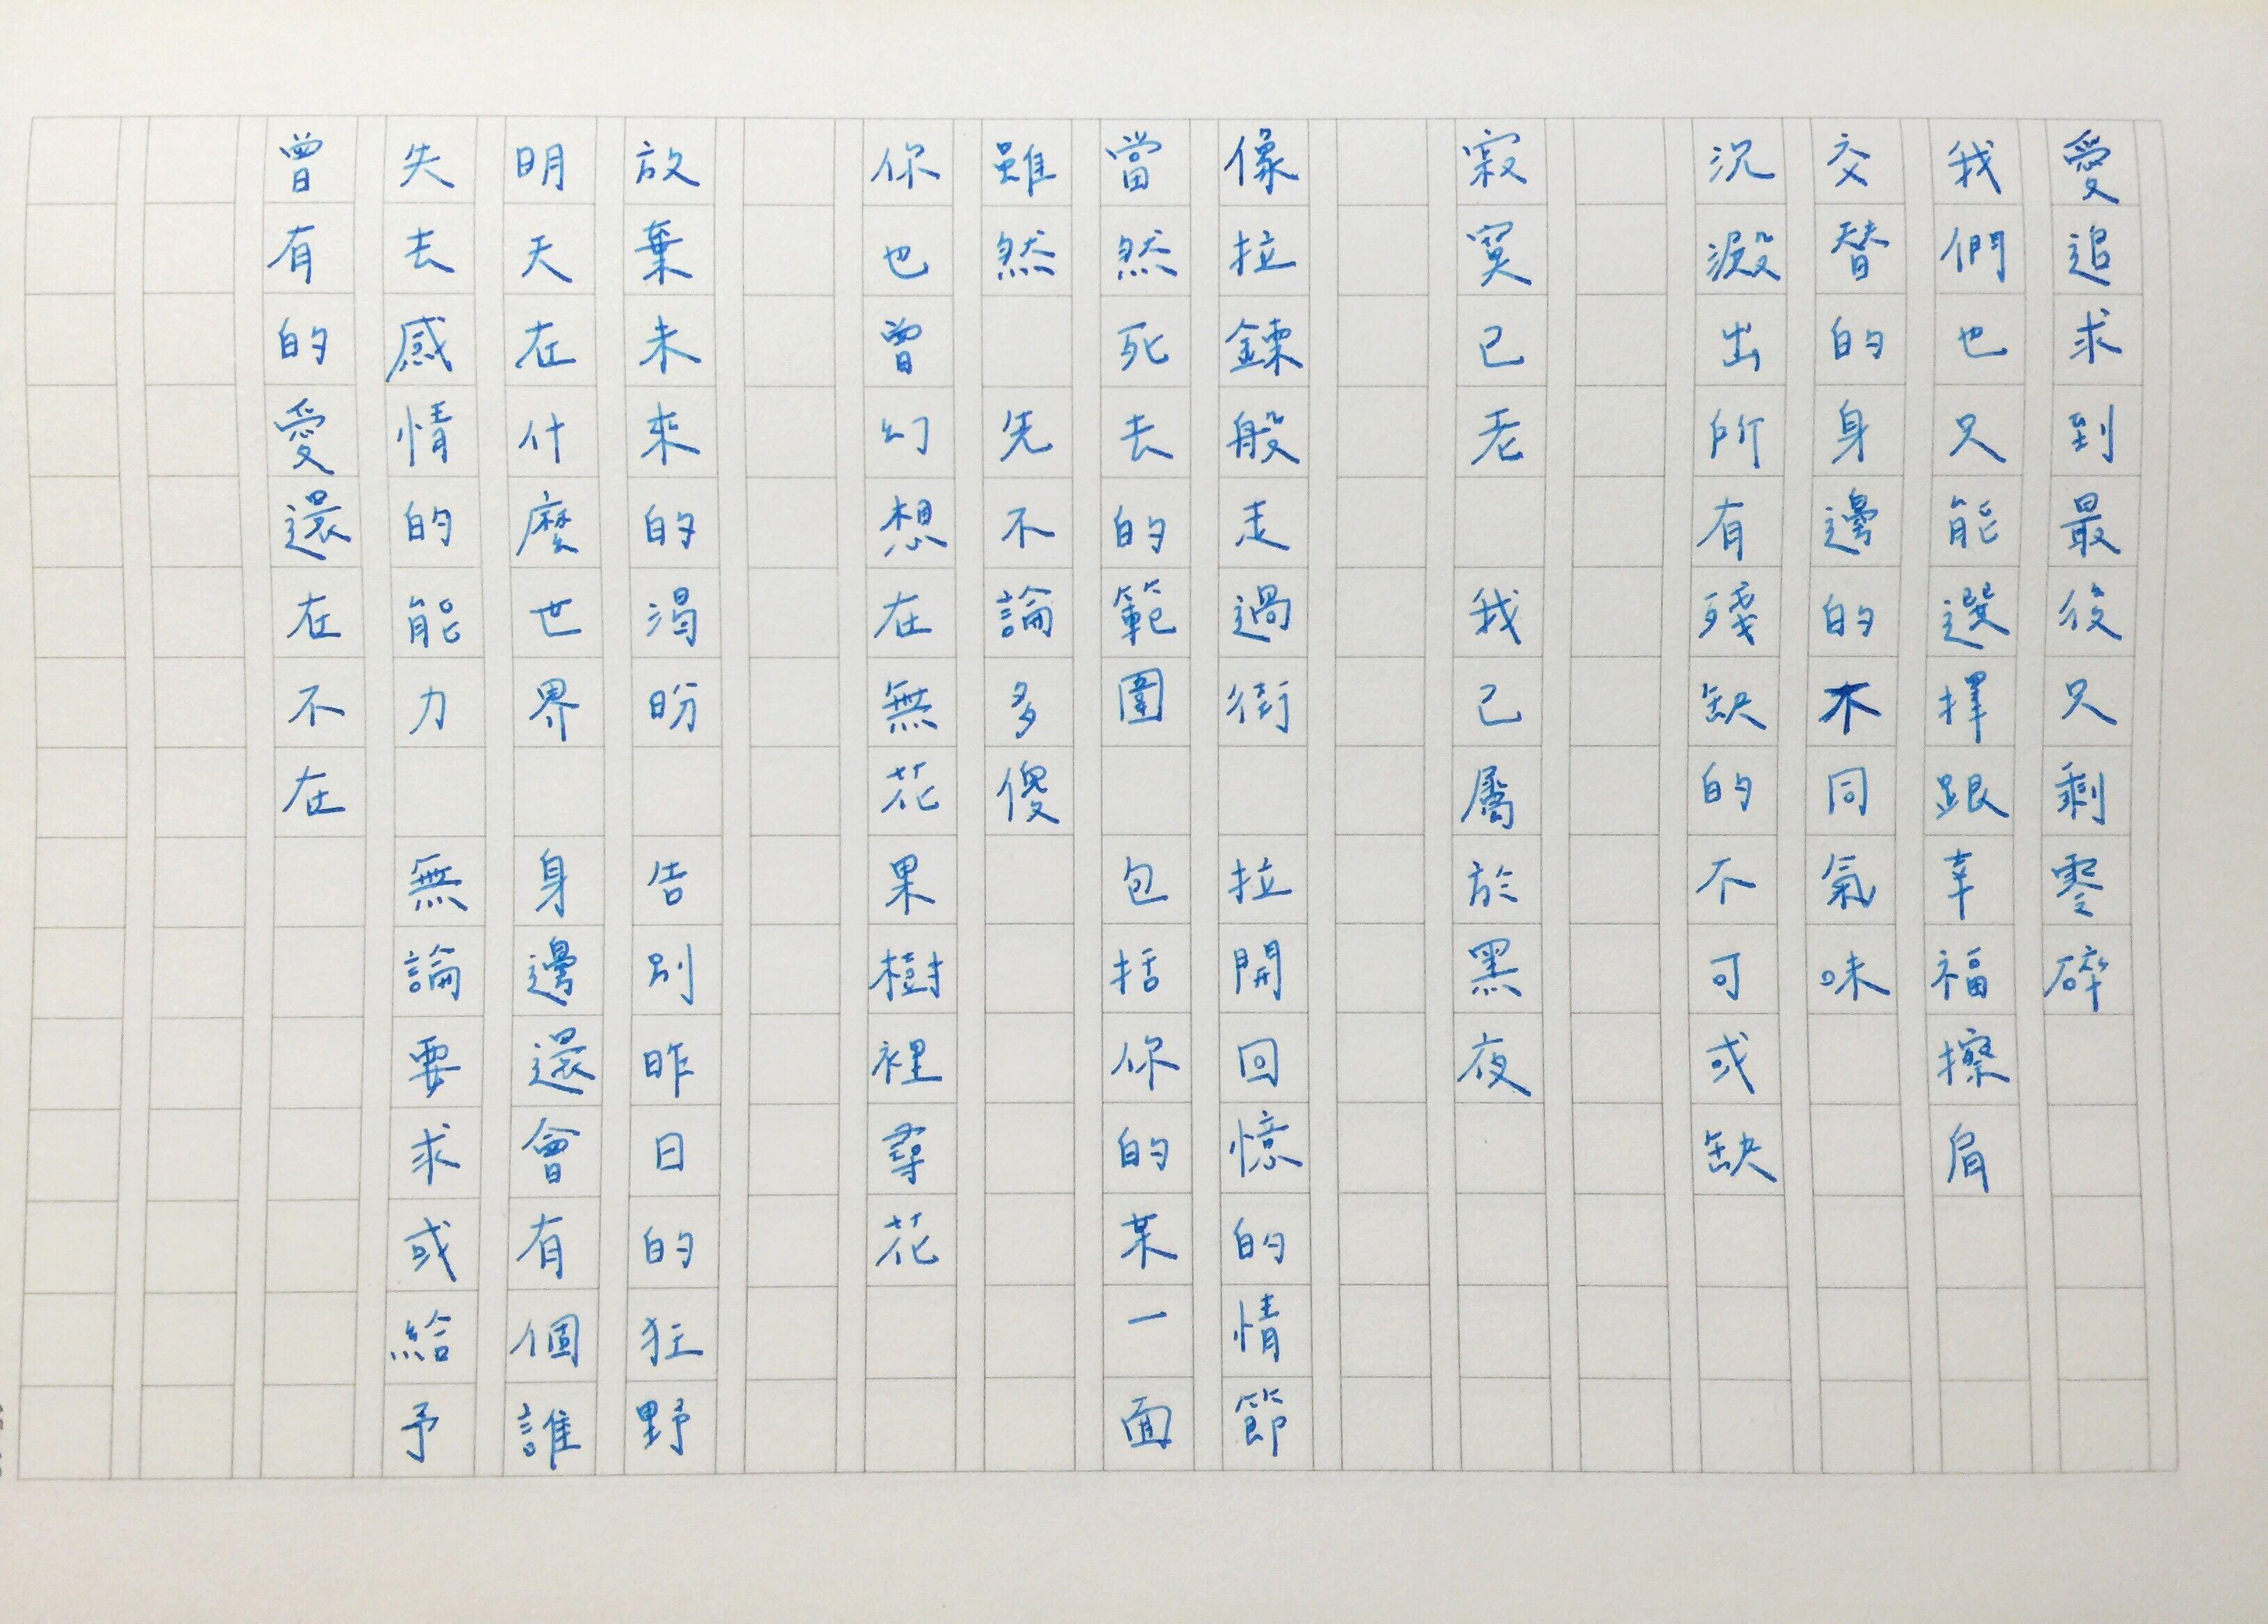 愛追求到最後只剩零碎
我們也只能選擇跟幸福擦肩
交替的身邊的不同氣味
沉澱出所有殘缺的不可或缺
寂寞已老　我已屬於黑夜
像拉鍊般走過街　拉開回憶的情節
當然死去的範圍　包括你的某一面
雖然　先不論多傻
你也曾幻想在無花果樹裡尋花
放棄未來的渴盼　告別昨日的狂野
明天在什麼世界　身邊還會有個誰
失去感情的能力　無論要求或給予
曾有的愛還在不在